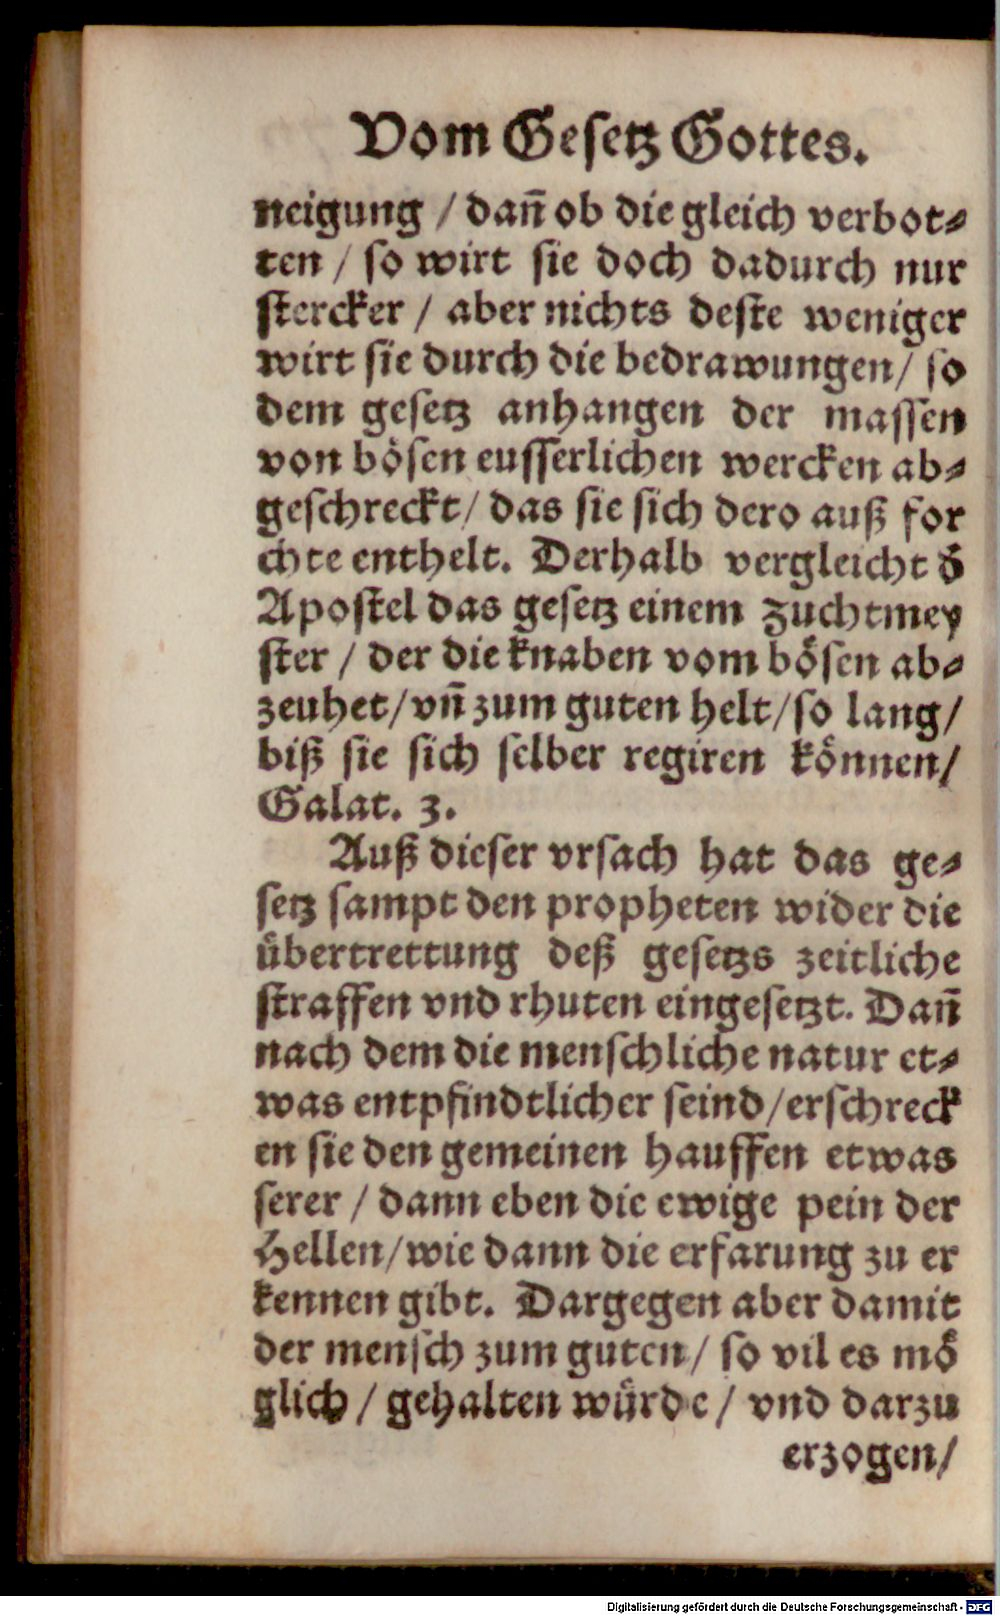 Vom Gesetz Gottes.
neigung / dañ ob die gleich verbot⸗
ten / so wirt sie doch dadurch nur
stercker / aber nichts deste weniger
wirt sie durch die bedrawungen / so
dem gesetz anhangen der massen
von bösen eusserlichen wercken ab⸗
geschreckt / das sie sich dero auß for
chte enthelt. Derhalb vergleicht d̄
Apostel das gesetz einem zuchtmey
ster / der die knaben vom bösen ab⸗
zeuhet / vñ zum guten helt / so lang /
biß sie sich selber regiren können /
Galat. 3.
Auß dieser vrsach hat das ge⸗
setz sampt den propheten wider die
übertrettung deß gesetzs zeitliche
straffen vnd rhuten eingesetzt. Dañ
nach dem die menschliche natur et⸗
was entpfindtlicher seind / erschreck
en sie den gemeinen hauffen etwas
serer / dann eben die ewige pein der
Hellen / wie dann die erfarung zu er
kennen gibt. Dargegen aber damit
der mensch zum guten / so vil es mö
glich / gehalten würde / vnd darzu
erzogen /
Digitalisierung gefördert durch die Deutsche Forschungsgemeinschaft - DFG